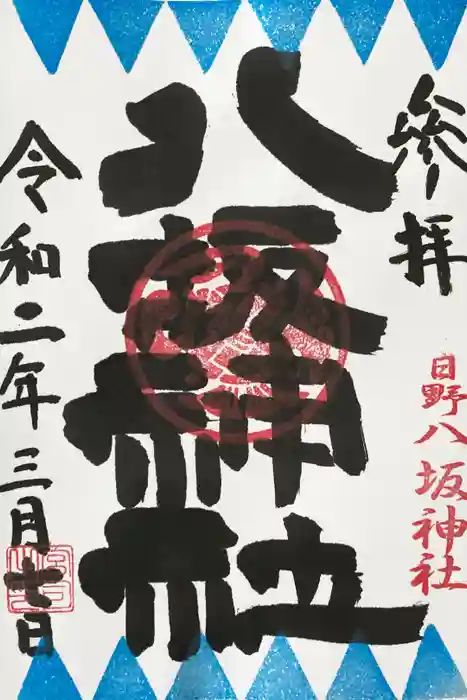 參拝
日野八坂神社
八坂神社
令和二年三月七日